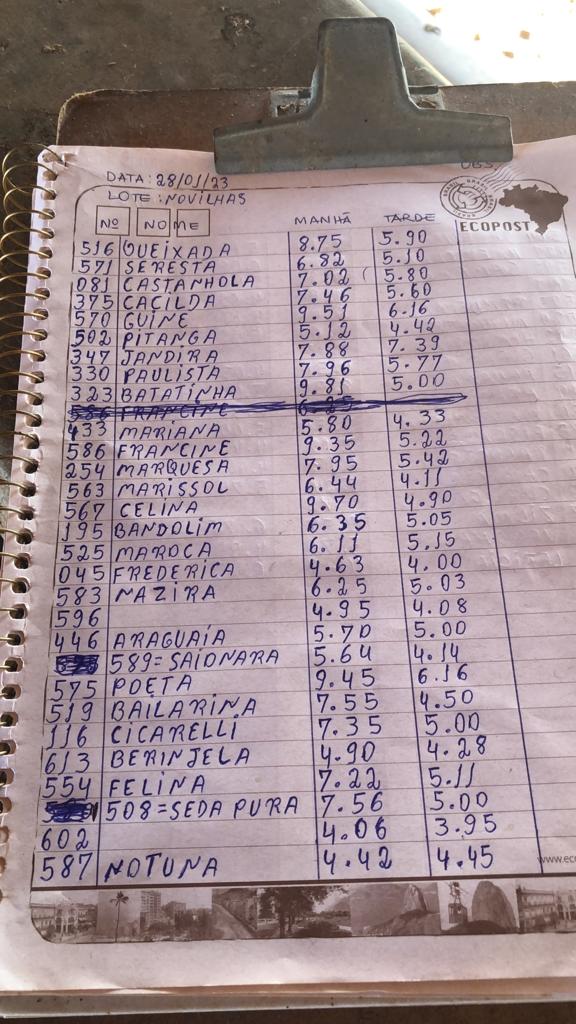 DATA: 28/01/23
LOTE: NOVILHAS
OBS
ECOPOST
Nº NOME MANHÃ TARDE
516 QUEIXADA 8.75 5.90
571 SERESTA 6.82 5.10
081 CASTANHOLA 7.02 5.80
375 CACILDA 7.46 5.60
570 GUINE 9.51 6.16
502 PITANGA 5.12 4.42
347 JANDIRA 7.88 7.39
330 PAULISTA 7.96 5.77
323 BATATINHA 9.81 5.00
586 FRANCINE
433 MARIANA 5.80 4.33
586 FRANCINE 9.35 5.22
254 MARQUESA 7.95 5.42
563 MARISSOL 6.44 4.11
567 CELINA 9.70 4.90
195 BANDOLIM 6.35 5.05
525 MAROCA 6.11 5.15
045 FREDERICA 4.63 4.00
583 NAZIRA 6.25 5.03
596 4.95 4.08
446 ARAGUAIA 5.70 5.00
589=SAIONARA 5.64 4.14
575 POETA 9.45 6.16
519 BAILARINA 7.55 4.50
116 CICARELLI 7.35 5.00
613 BERINJELA 4.90 4.28
554 FELINA 7.22 5.11
508=SEDA PURA 7.56 5.00
602 4.06 3.95
587 NOTUNA 4.42 4.45
www.ec